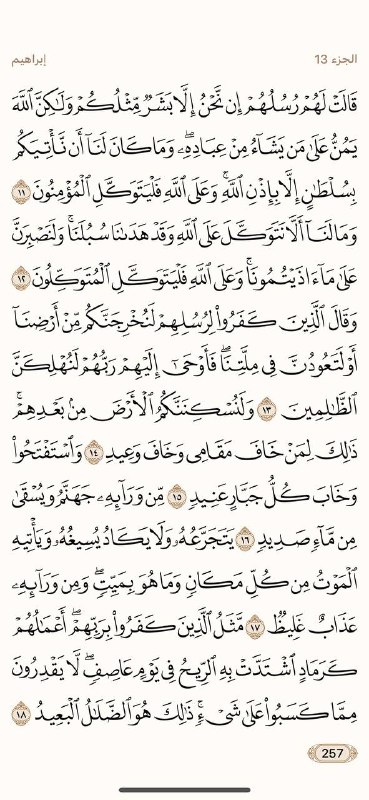 الجزء 13
إبراهيم
قَالَتْ لَهُمْ رُسُلُهُمْ إِن نَّحْنُ إِلَّا بَشَرٌ مِّثْلُكُمْ وَلَٰكِنَّ ٱللَّهَ
يَمُنُّ عَلَىٰ مَن يَشَآءُ مِنْ عِبَادِهِۦۖ وَمَا كَانَ لَنَآ أَن نَّأْتِيَكُم
بِسُلْطَٰنٍ إِلَّا بِإِذْنِ ٱللَّهِۚ وَعَلَى ٱللَّهِ فَلْيَتَوَكَّلِ ٱلْمُؤْمِنُونَ ١١
وَمَا لَنَآ أَلَّا نَتَوَكَّلَ عَلَى ٱللَّهِ وَقَدْ هَدَىٰنَا سُبُلَنَاۚ وَلَنَصْبِرَنَّ
عَلَىٰ مَآ ءَاذَيْتُمُونَاۚ وَعَلَى ٱللَّهِ فَلْيَتَوَكَّلِ ٱلْمُتَوَكِّلُونَ ١٢
وَقَالَ ٱلَّذِينَ كَفَرُوا۟ لِرُسُلِهِمْ لَنُخْرِجَنَّكُم مِّنْ أَرْضِنَآ
أَوْ لَتَعُودُنَّ فِى مِلَّتِنَاۖ فَأَوْحَىٰٓ إِلَيْهِمْ رَبُّهُمْ لَنُهْلِكَنَّ
ٱلظَّٰلِمِينَ ١٣ وَلَنُسْكِنَنَّكُمُ ٱلْأَرْضَ مِنۢ بَعْدِهِمْۚ
ذَٰلِكَ لِمَنْ خَافَ مَقَامِى وَخَافَ وَعِيدِ ١٤ وَٱسْتَفْتَحُوا۟
وَخَابَ كُلُّ جَبَّارٍ عَنِيدٍ ١٥ مِّن وَرَآئِهِۦ جَهَنَّمُ وَيُسْقَىٰ
مِن مَّآءٍ صَدِيدٍ ١٦ يَتَجَرَّعُهُۥ وَلَا يَكَادُ يُسِيغُهُۥ وَيَأْتِيهِ
ٱلْمَوْتُ مِن كُلِّ مَكَانٍ وَمَا هُوَ بِمَيِّتٍۖ وَمِن وَرَآئِهِۦ
عَذَابٌ غَلِيظٌ ١٧ مَّثَلُ ٱلَّذِينَ كَفَرُوا۟ بِرَبِّهِمْۖ أَعْمَٰلُهُمْ
كَرَمَادٍ ٱشْتَدَّتْ بِهِ ٱلرِّيحُ فِى يَوْمٍ عَاصِفٍۖ لَّا يَقْدِرُونَ
مِمَّا كَسَبُوا۟ عَلَىٰ شَىْءٍۚ ذَٰلِكَ هُوَ ٱلضَّلَٰلُ ٱلْبَعِيدُ ١٨
257